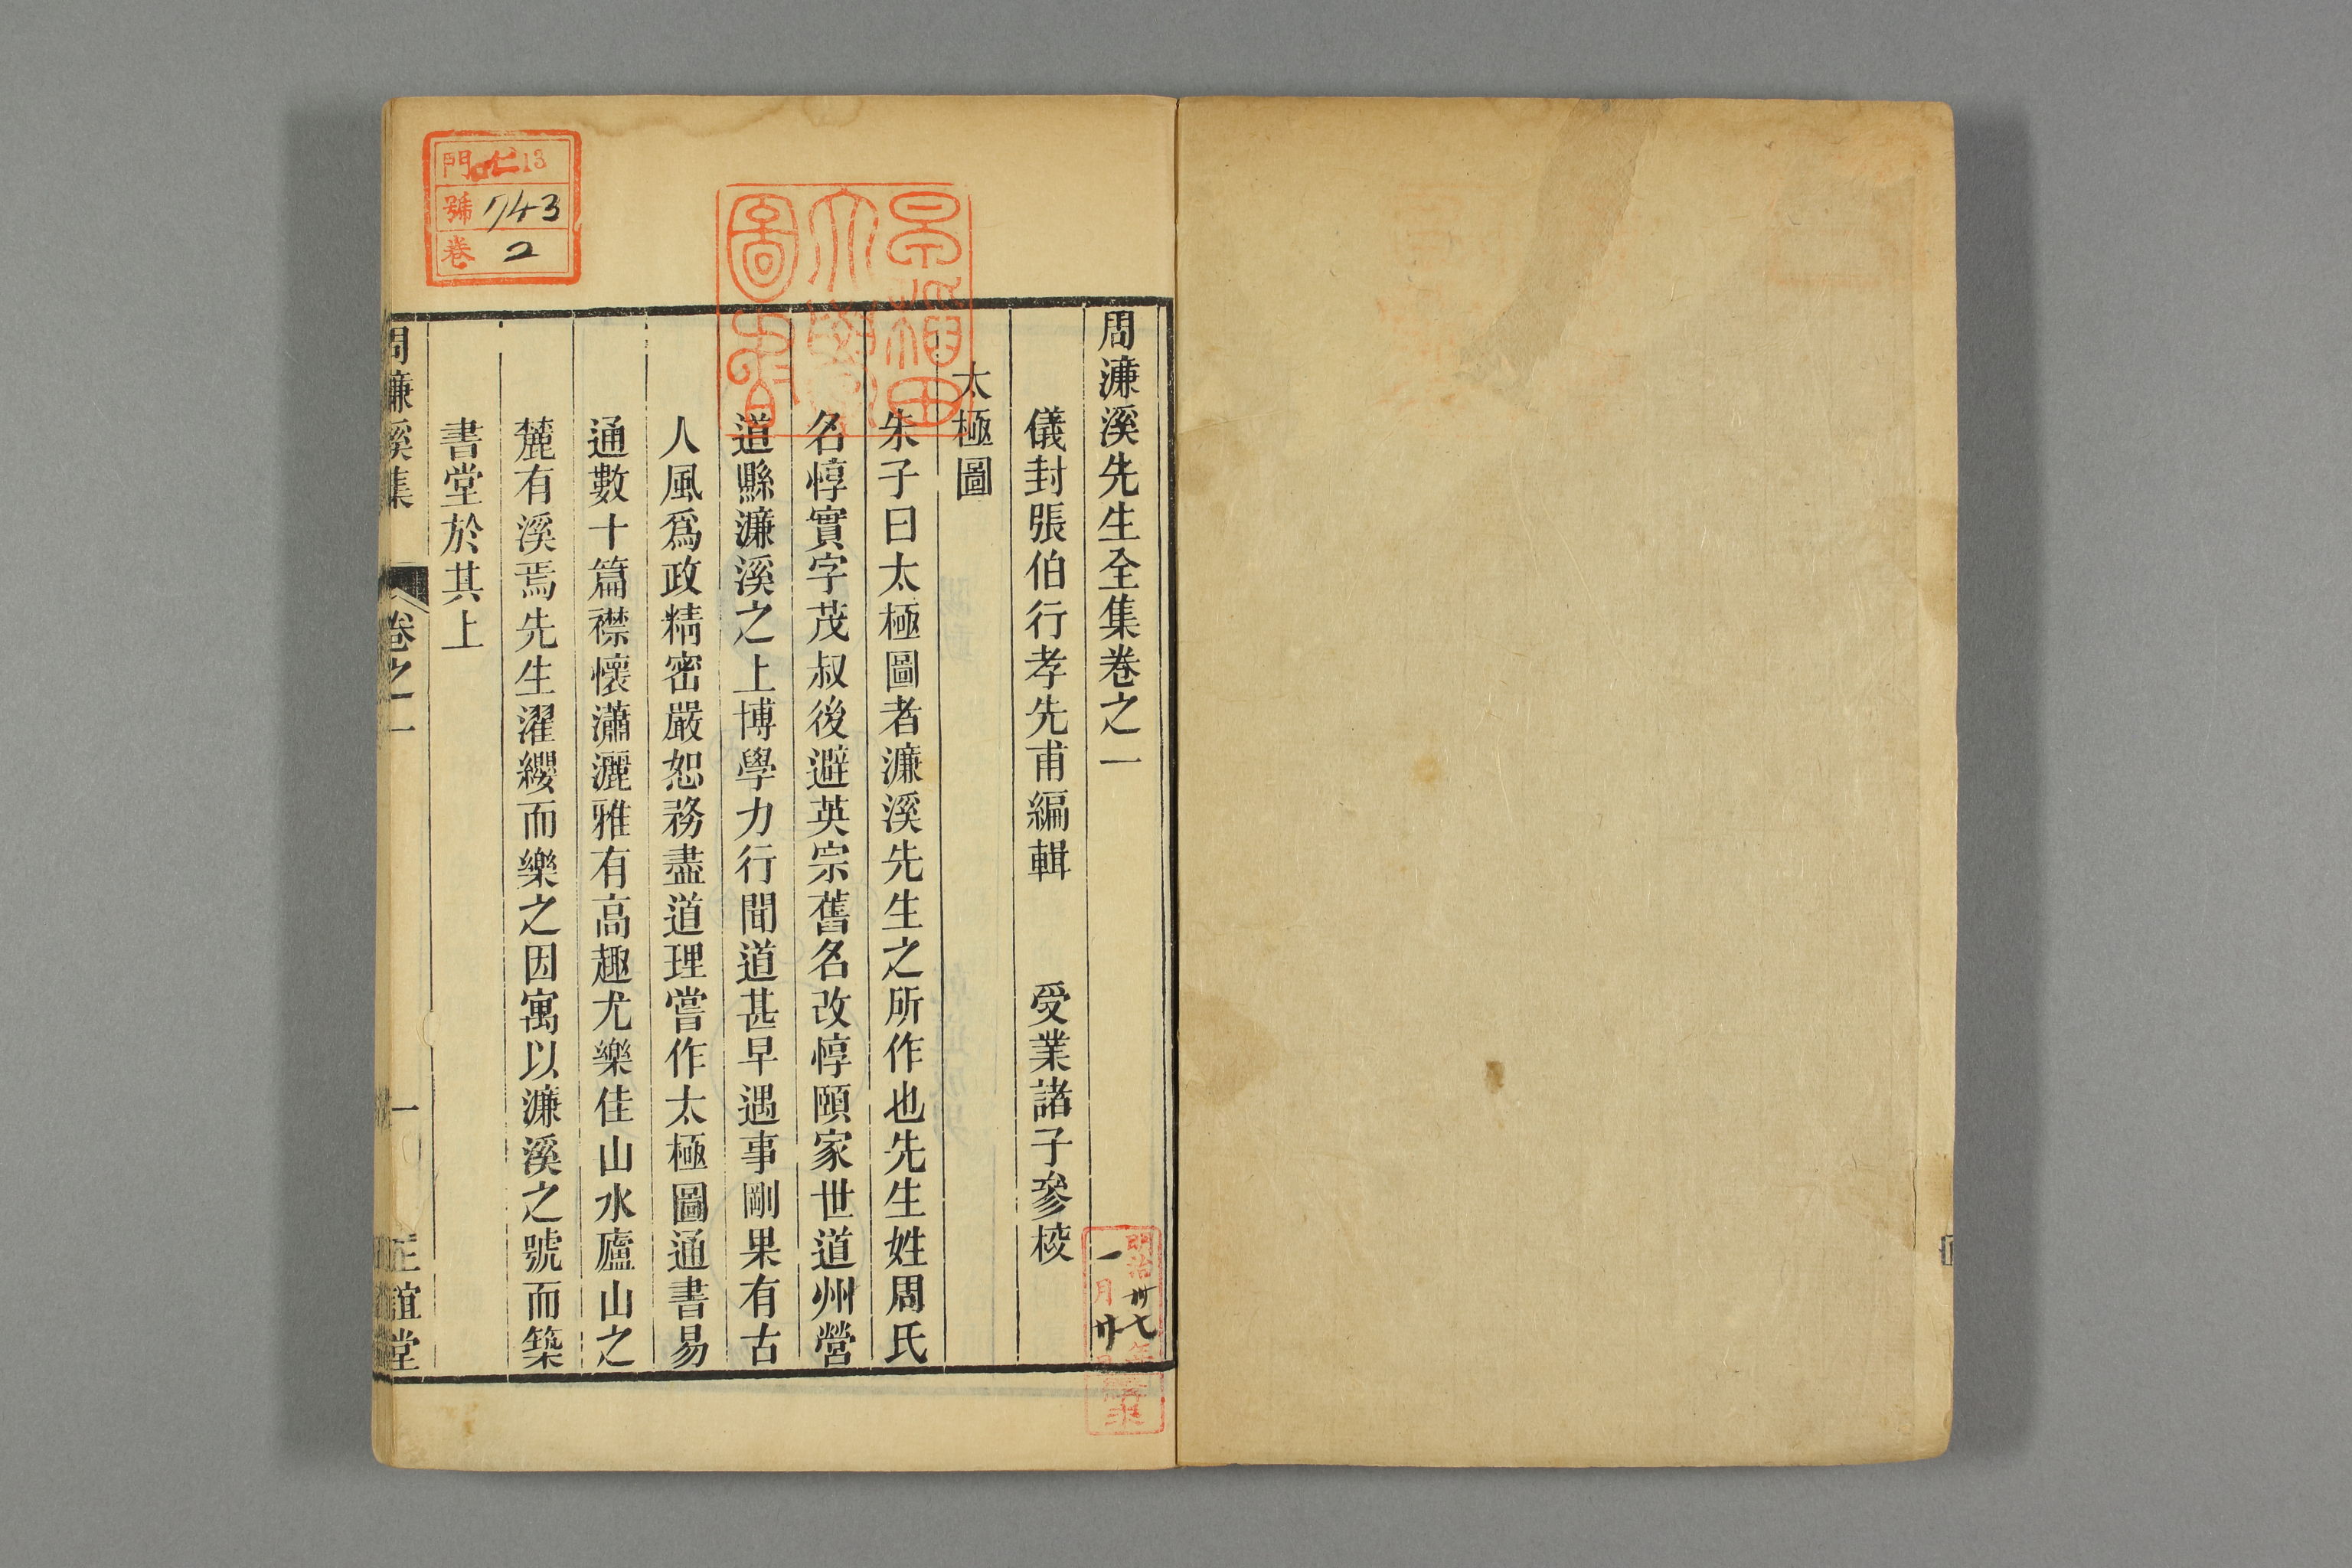 周濂溪先生全集卷之一
儀封張伯行孝先甫編輯 受業諸子參校
太極圖
朱子曰太極圖者濂溪先生之所作也先生姓周氏
名惇實字茂叔後避英宗舊名改惇頤家世道州營
道縣濂溪之上博學力行聞道甚早遇事剛果有古
人風爲政精密嚴恕務盡道理嘗作太極圖通書易
通數十篇襟懷瀟灑雅有高趣尤樂佳山水廬山之
麓有溪焉先生濯纓而樂之因寓以濂溪之號而築
書堂於其上
周濂溪集 卷之一 一 正誼堂
門 仁13
號 743
卷 2
早稻田
大學
圖書
明治卅七年
一月廿日